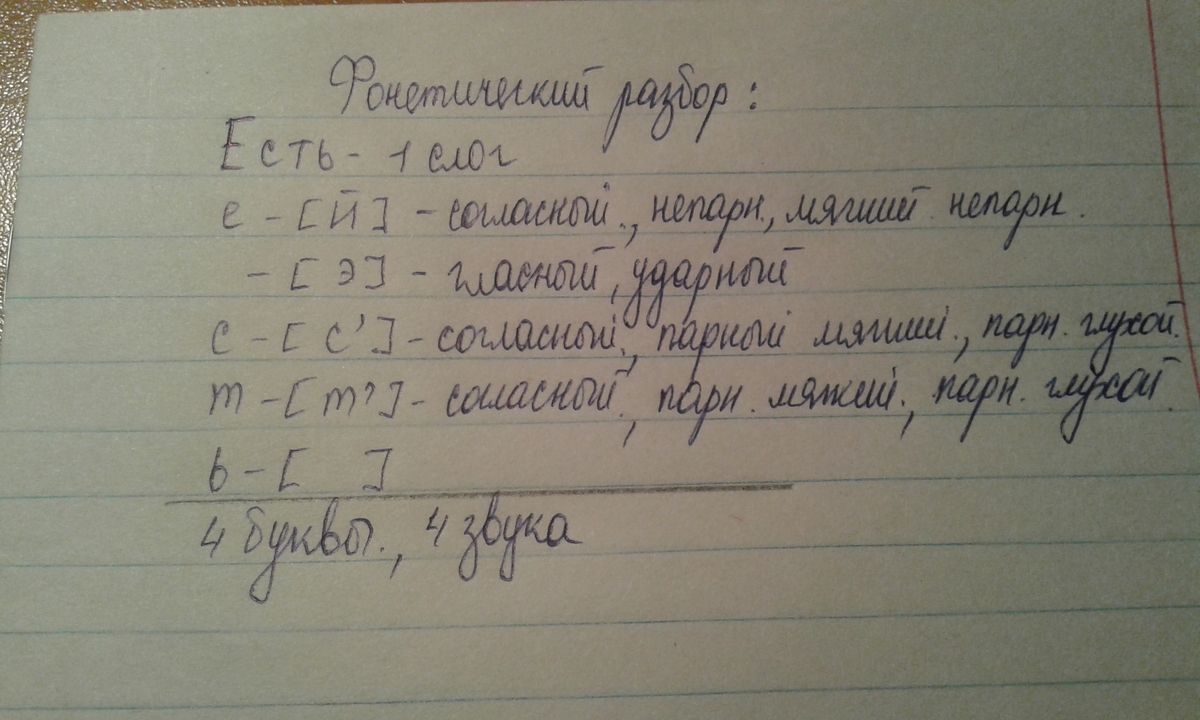 Фонетический разбор:
Есть - 1 слог
е - [й] - согласный., непарн., мягкий непарн.
- [э] - гласный, ударный
с - [с'] - согласный., парный мягкий., парн. глухой.
т - [т'] - согласный., парн. мягкий., парн. глухой.
ь - [ ]
4 буквы., 4 звука